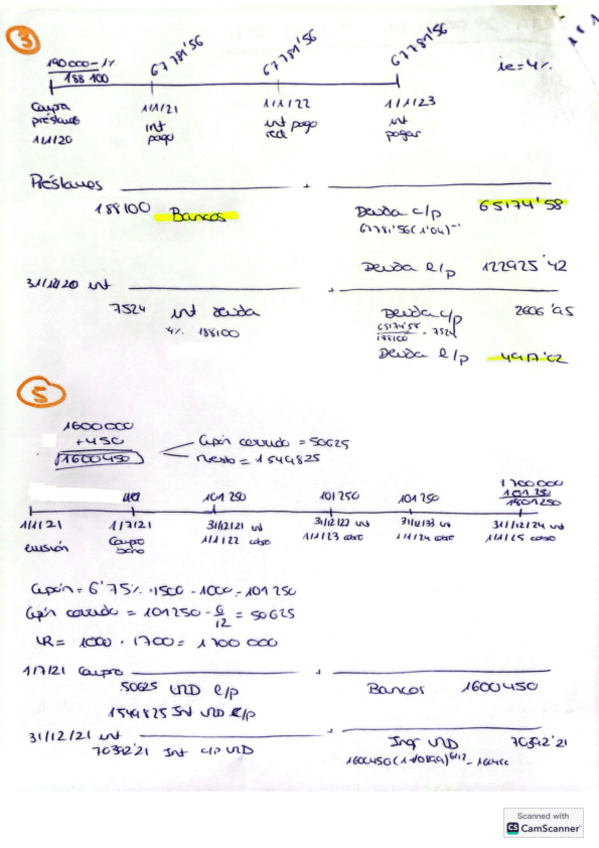 3
190000-1%
188 100
67781'56
67781'56
67781'56
ie=4%
préstamo
1/1/20
1/1/21
int
pago
1/1/22
int pago
1/1/23
int
pagar
Préstamos
188100 Bancos
Deuda c/p 65174'58
67781'56(1'04)⁻¹
Deuda l/p 122925'42
31/12/20 int
7524 int deuda
4% 188100
Deuda c/p 2606'95
65174'58
188100 · 7524
Deuda l/p 4917'02
5
1600000
+450
1600450
Cupón corrido = 50625
Resto = 1549825
101 250
101250
101 250
1 700 000
101 250
1801250
1/1/21
emisión
1/7/21
Compra
bono
31/12/21 int
1/1/22 cobro
31/12/22 int
1/1/23 cobro
31/12/33 int
1/1/24 cobro
31/12/24 int
1/1/25 cobro
Cupón = 6'75% · 1500 · 1000 = 101 250
Cupón corrido = 101250 · 6/12 = 50625
VR = 1000 · 1700 = 1 700 000
1/7/21 Compra
50625 VRD c/p
1549825 Int VRD l/p
Bancos 1600450
31/12/21 int
70392'21 Int c/p VRD
Ingr VRD 70392'21
Scanned with
CS CamScanner